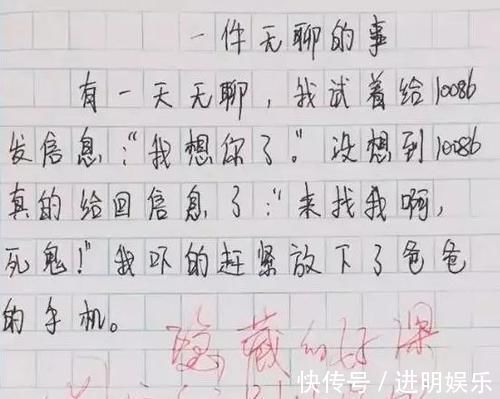 一件无聊的事
有一天无聊，我试着给10086
发信息："我想你了"。没想到10086
真的给回信息了："来找我啊，
死鬼！"我吓的赶紧放下了爸爸
的手机。
隐藏的好深
快传号/进明娱乐